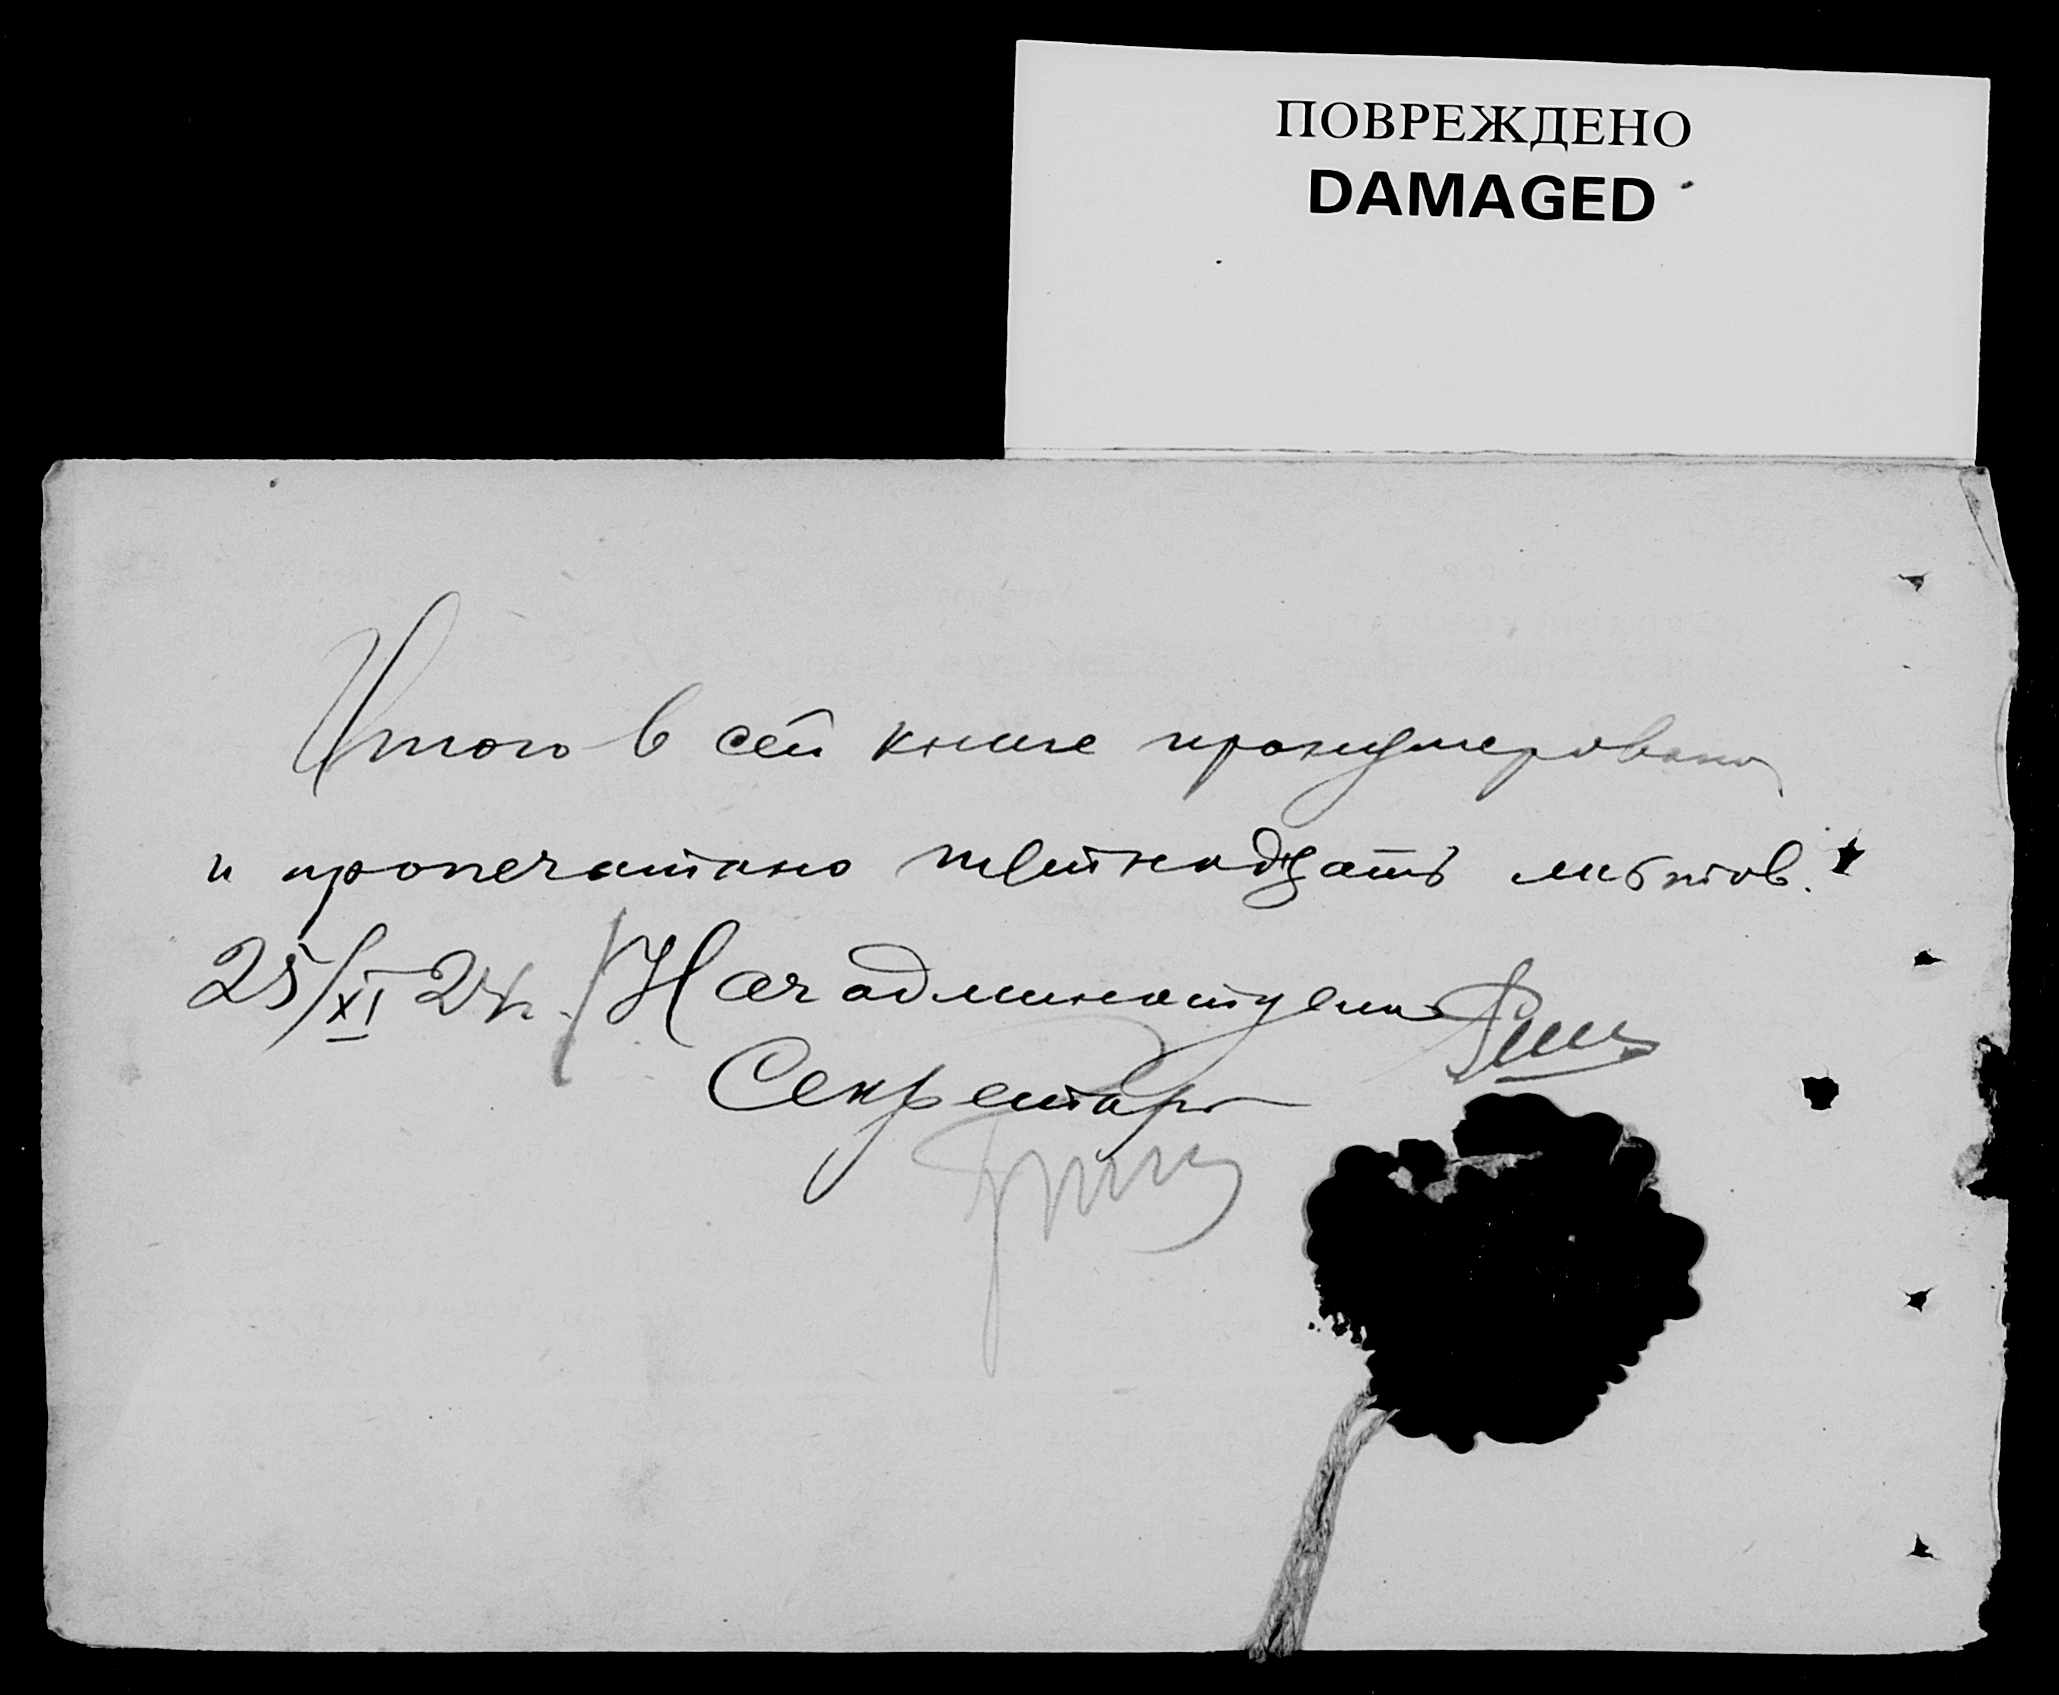 ПОВРЕЖДЕНО
DAMAGED
Итого в сей книге пронумеровано
и пропечатано листов.
25/XI 24г. Начадмин
Секретарь